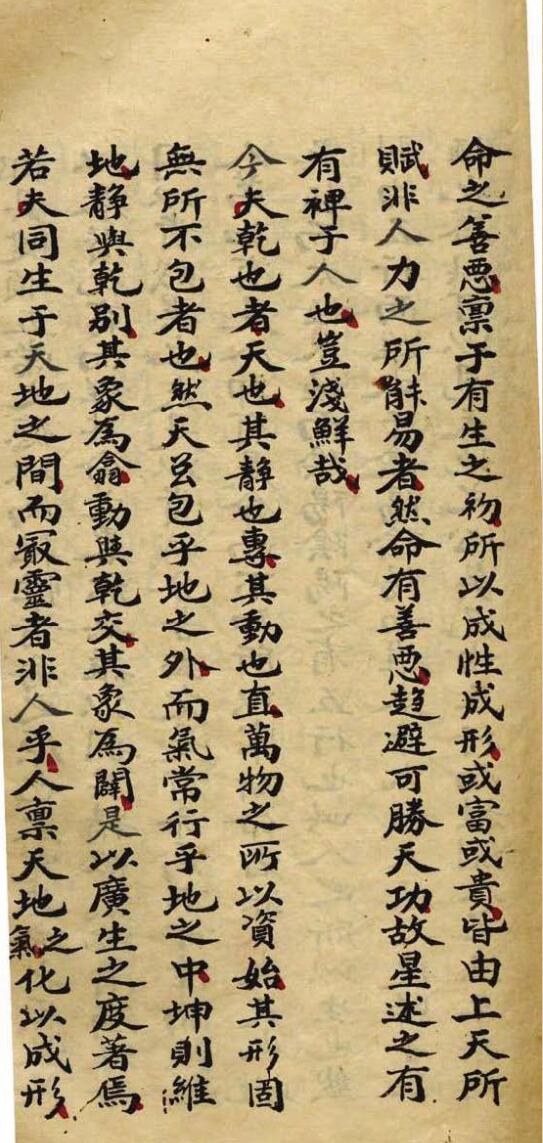 命之善悪禀于有生之初所以成性成形或富或貴皆由上天所
賦非人力之所能易者然命有善悪趋避可勝天功故星述之有
有裨于人也豈淺鮮哉
今夫乾也者天也其静也專其動也直萬物之所以資始其形固
無所不包者也然天㒳包乎地之外而氣常行乎地之中坤則維
地静與乾别其象爲翕動與乾交其象爲闢是以廣生之度著焉
若夫同生于天地之間而㝡靈者非人乎人禀天地之氣化以成形